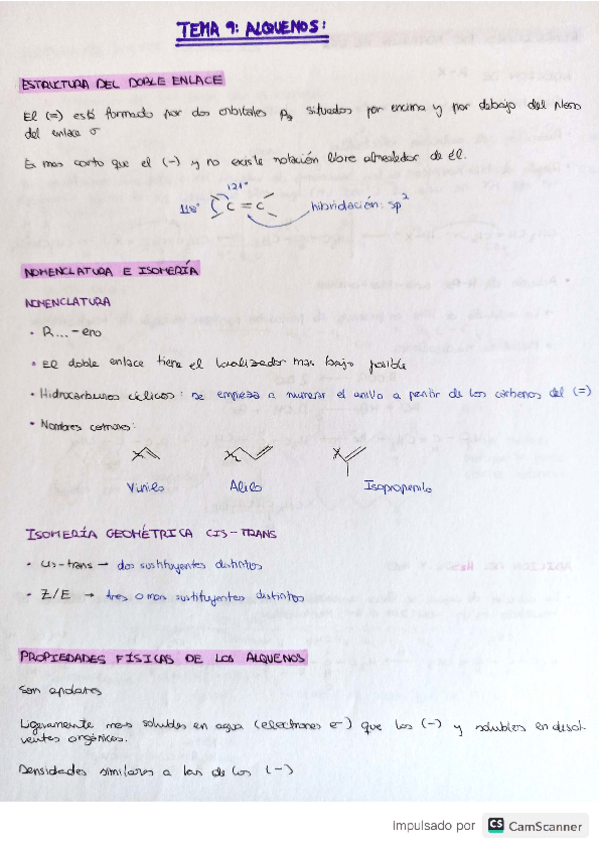 TEMA 9: ALQUENOS:
ESTRUCTURA DEL DOBLE ENLACE
El (=) está formado por dos orbitales p situados por encima y por debajo del plano
del enlace σ
Es mas corto que el (-) y no existe rotación libre alrededor de él.
121°
118° C = C hibridación: sp²
NOMENCLATURA E ISOMERÍA
NOMENCLATURA
• R...-eno
• El doble enlace tiene el localizador mas bajo posible
• Hidrocarburos cíclicos: se empieza a numerar el anillo a partir de los carbonos del (=)
• Nombres comunes:
Vinilo Alilo Isopropenilo
ISOMERÍA GEOMÉTRICA CIS-TRANS
• cis-trans → dos sustituyentes distintos
• Z/E → tres o mas sustituyentes distintos
PROPIEDADES FÍSICAS DE LOS ALQUENOS
Son apolares
Ligeramente mas solubles en agua (electrones e-) que los (-) y solubles en disol-
ventes orgánicos.
Densidades similares a las de los (-)
Impulsado por CS CamScanner